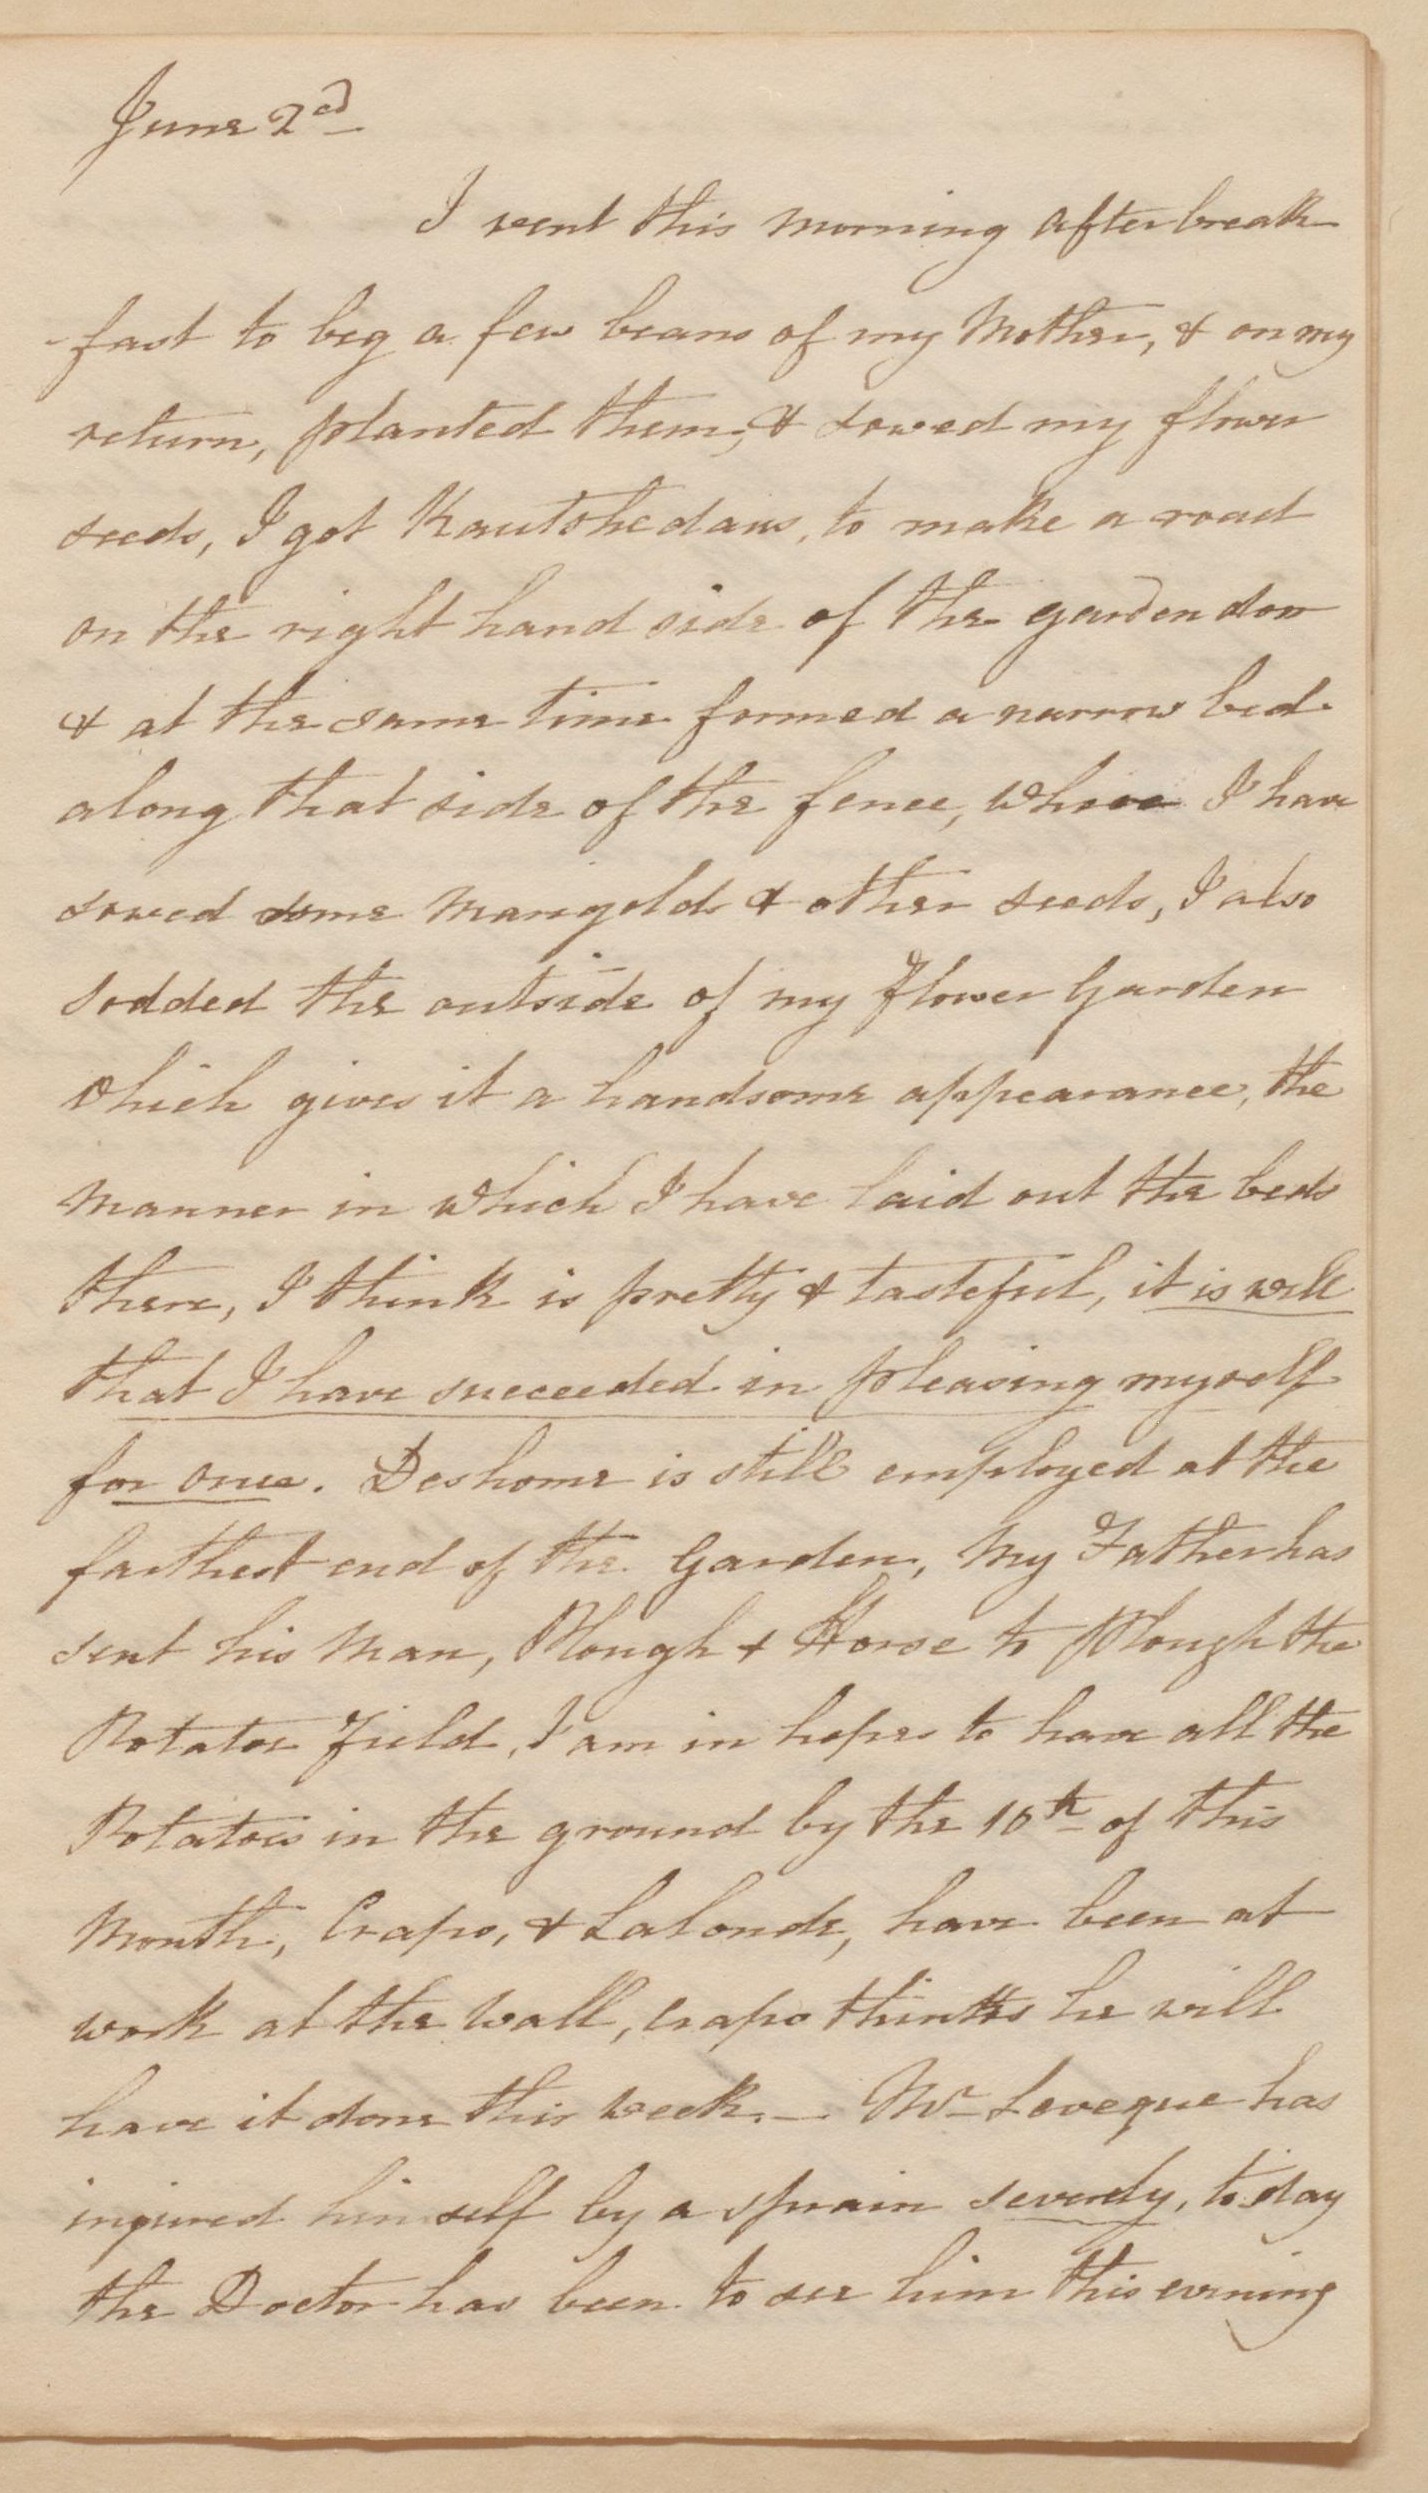 June 2nd
I went this morning after break
-fast to beg a few beans of my Mother, & on my
return, planted them, & sowed my flower
seeds, I got Kautshedaus, to make a road
on the right hand side of the garden door
& at the same time formed a narrow bed
along that side of the fence, where I have
sowed some Marigold & other seeds, I also
sodded the outside of my flower Garden
which gives it a handsome appearance, the
manner in which I have laid out the beds
there, I think is pretty & tasteful, it is well
that I have succeeded in pleasing myself
for once. Deshome is still employed at the
farthest end of the Garden, My Father has
sent his Man, Plough & Horse to Plough the
Potatoe Field, I am in hopes to have all the
Potatoes in the ground by the 10th of this
Month, Crapo, & Lalonde, have been at
work at the Wall, Crapo thinks he will
have it done this week. — Mr Leveque has
injured himself by a sprain severely, to day
the Doctor has been to see him this evening